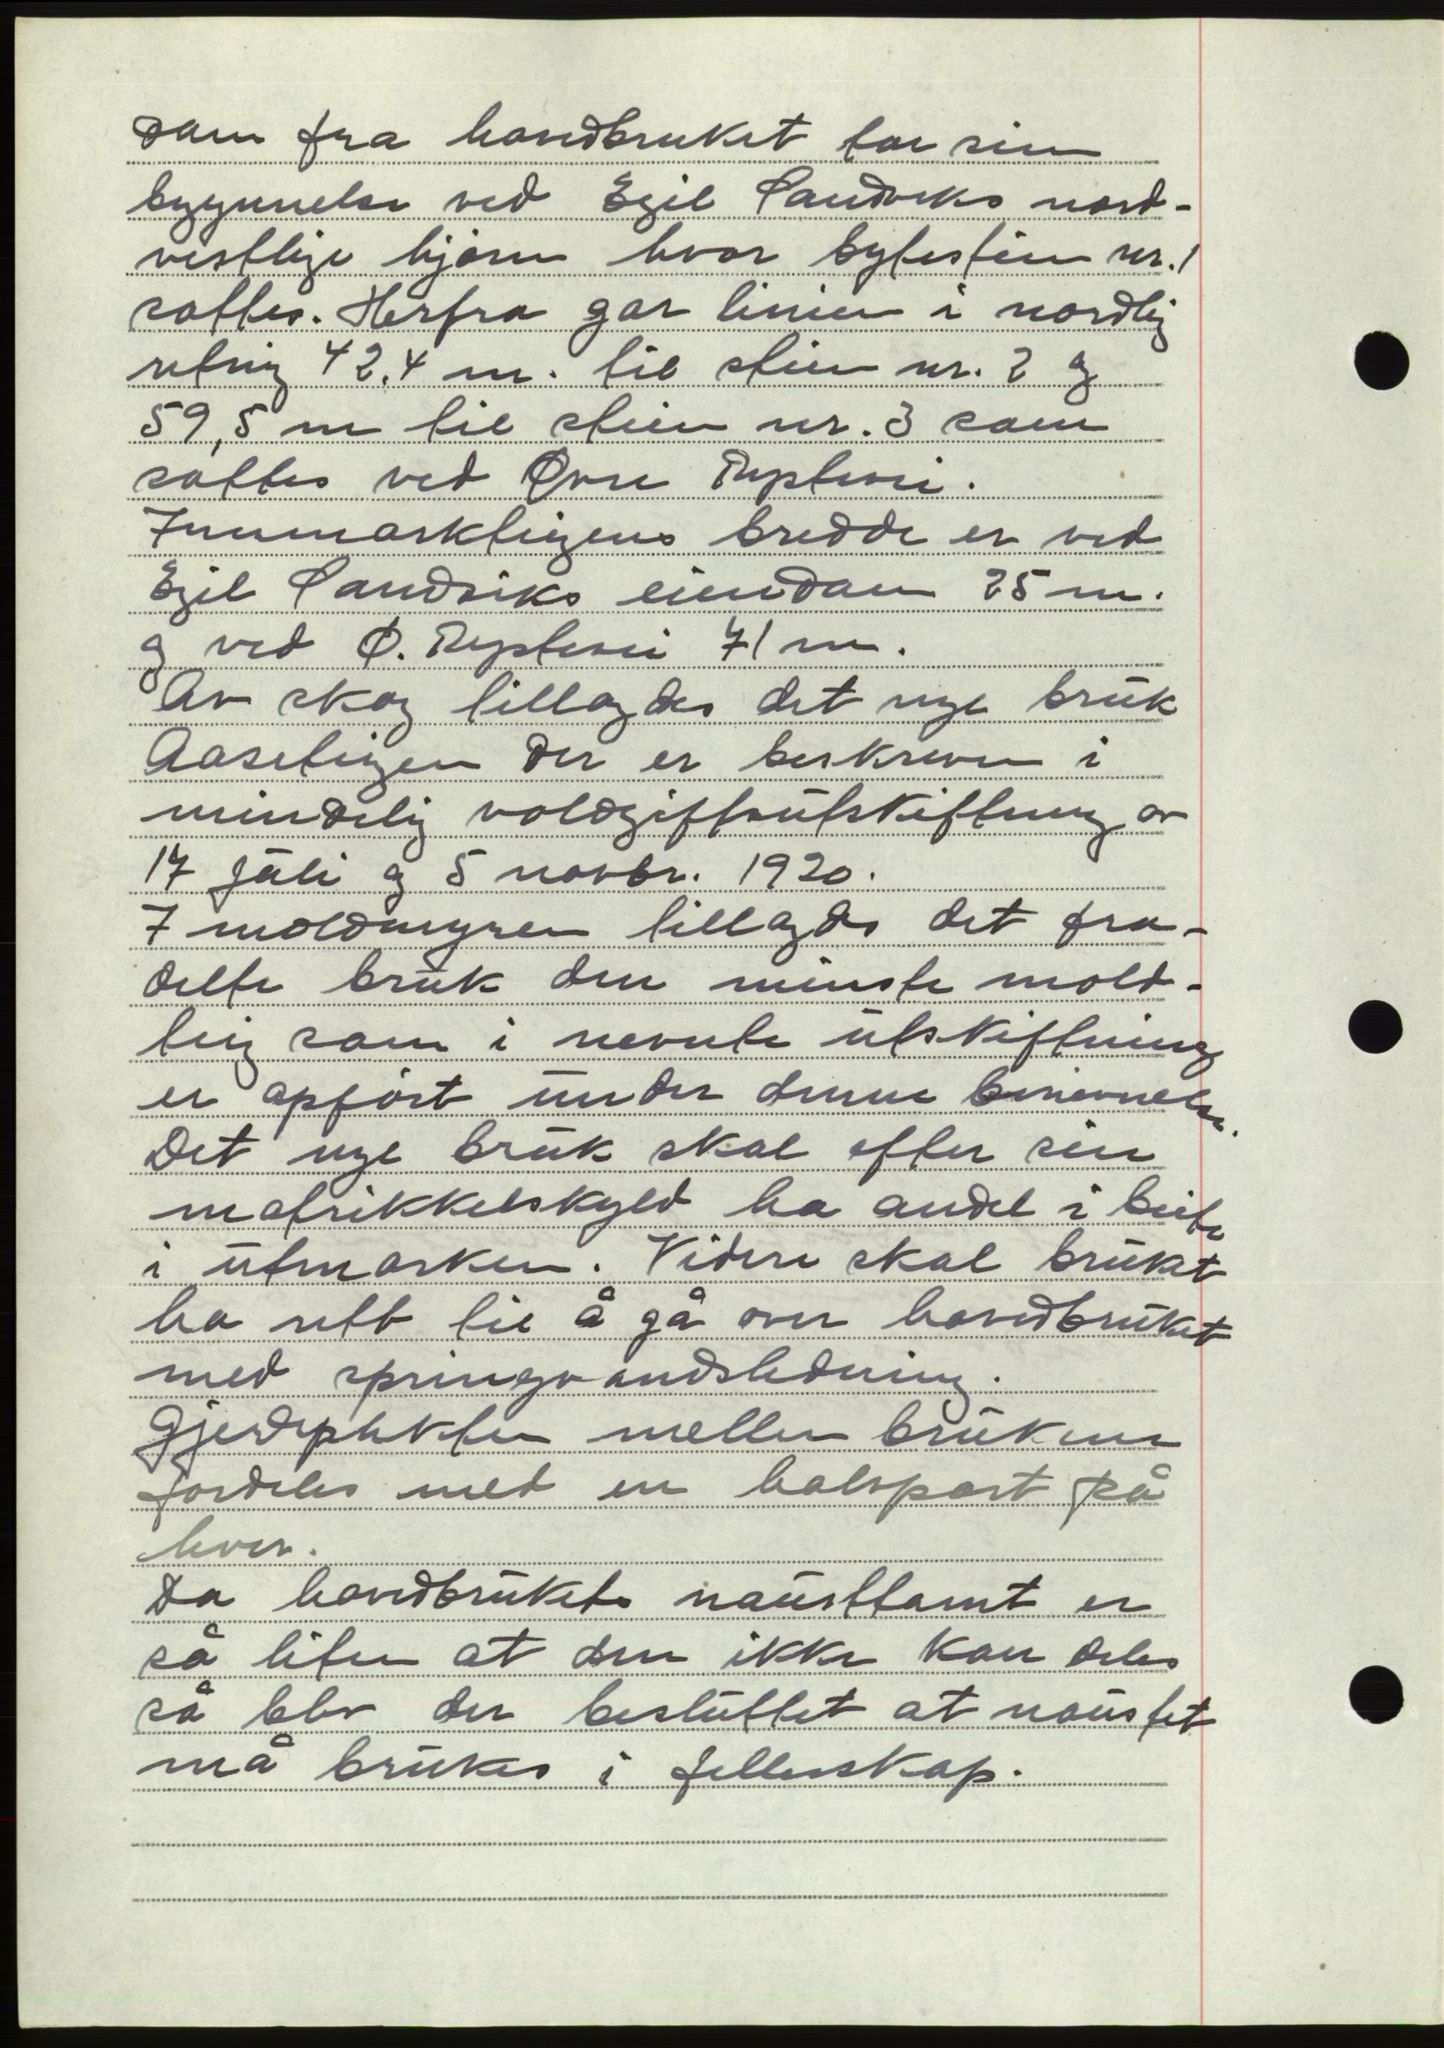 som fra hovedbruket tar sin
begynnelse ved Egil Sandviks nord-
vestlige hjørne hvor bytestein nr. 1
sattes. Herfra går linien i nordlig
retnig 42,4 m. til stein nr. 2 og
59,5 m til stein nr. 3 som
sattes ved Øvre
Innmarkteigens bredde er ved
Egil Sandviks eiendom 25 m.
og ved Ø. 71 m.
Av skog tillagdes det nye bruk
Aaseteigen der er beskreven i
mindelig voldgiftsutskiftning av
17 juli og 5 novbr. 1920.
I moldmyren tillagdes det fra-
delte bruk den minste mold-
teig som i nevnte utskiftning
er opført under denne benevnelse.
Det nye bruk skal efter sin
matrikkelskyld ha andel i beite
i utmarken. Videre skal bruket
ha rett til å gå over hovedbruket
med springvandsledning.
Gjerdeplikten mellem brukene
fordeles med en halvpart på
hver.
Da hovedbrukets nausttomt er
så liten at den ikke kan deles
så blev der besluttet at naustet
må brukes i fellesskap.